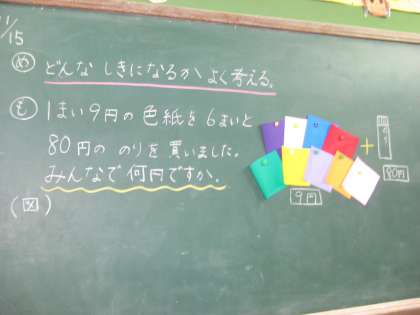 11/15
め どんな しきになるか よく考える。
も 1まい9円の色紙を6まいと
80円の のりを買いました。
みんなで何円ですか。
(図)
+
9円
80円